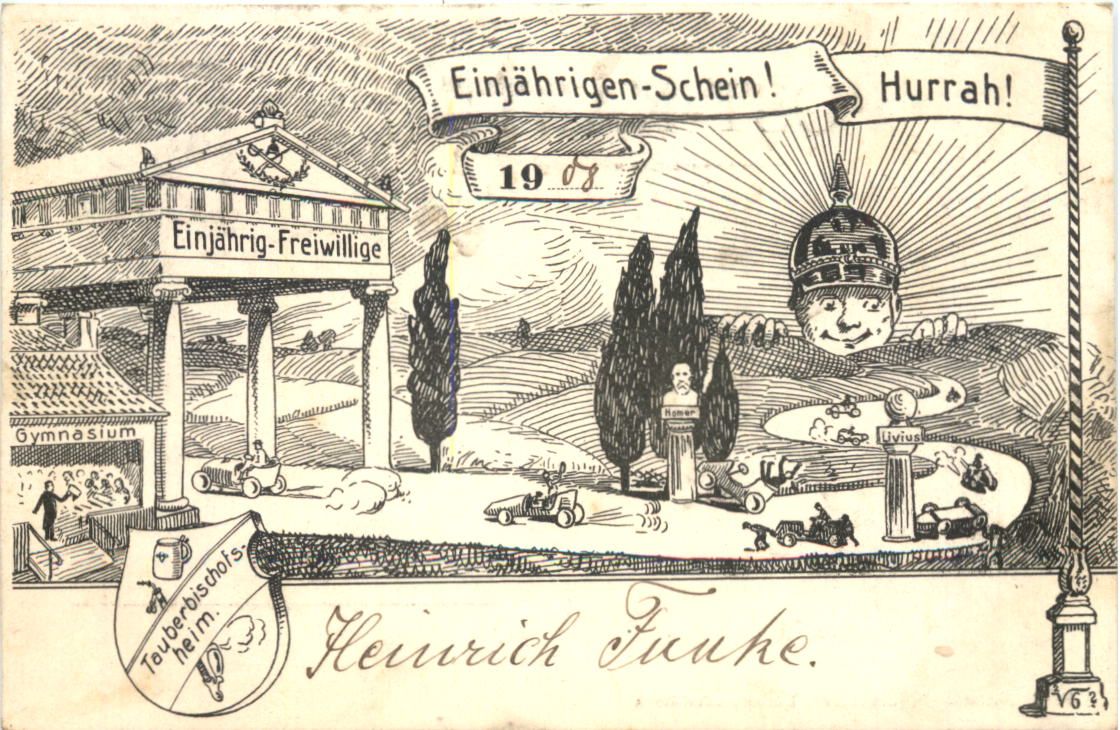 Einjährigen-Schein!
Hurrah!
19 08
Einjährig-Freiwillige
Gymnasium
Homer
Livius
4
Tauberbischofs-
heim.
Heinrich Funke.